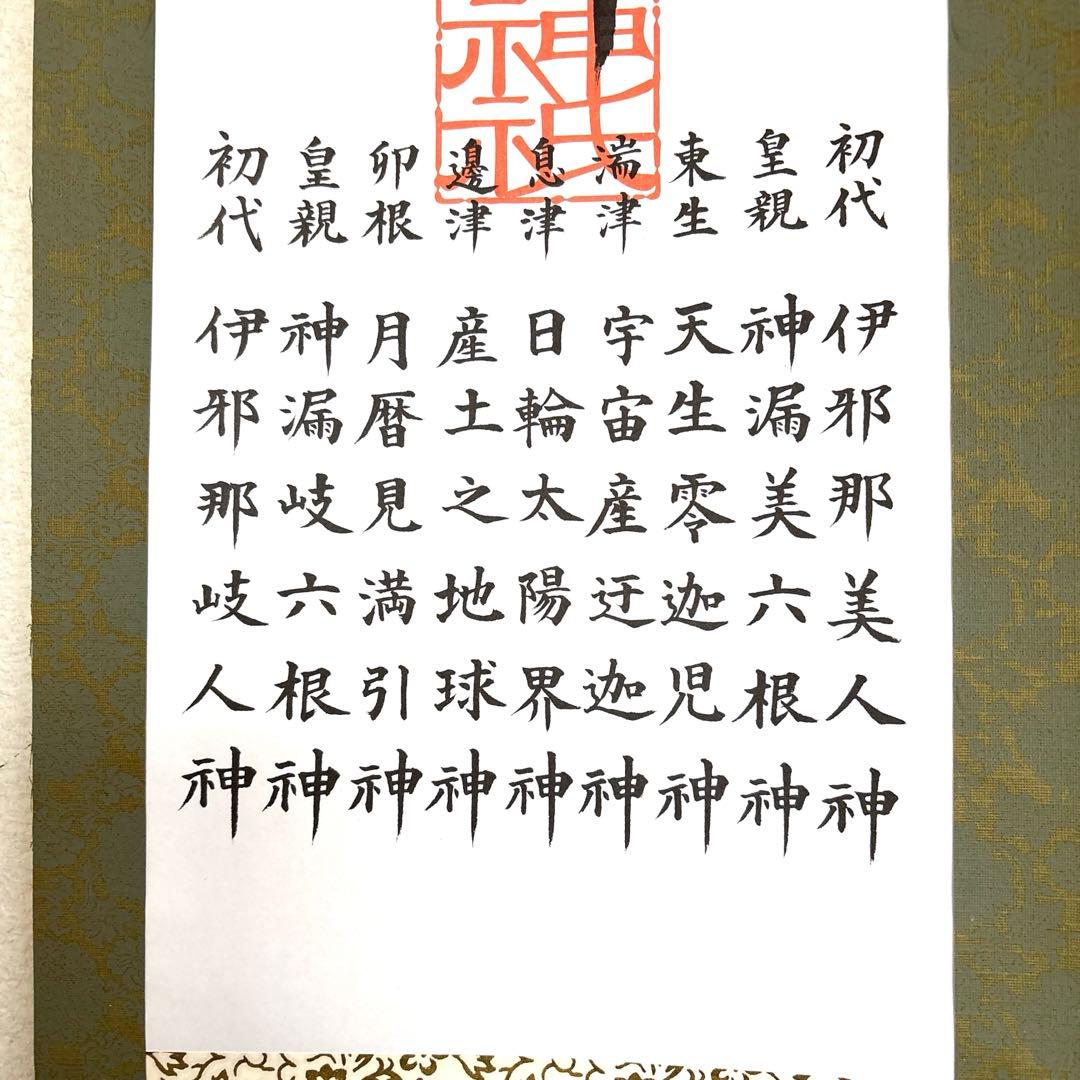 初代 伊邪那美人神
皇親 神漏美六根神
東生 天生零迦児神
湍津 宇宙産迂迦神
息津 日輪太陽界神
邊津 産土之地球神
卯根 月暦見満引神
皇親 神漏岐六根神
初代 伊邪那岐人神